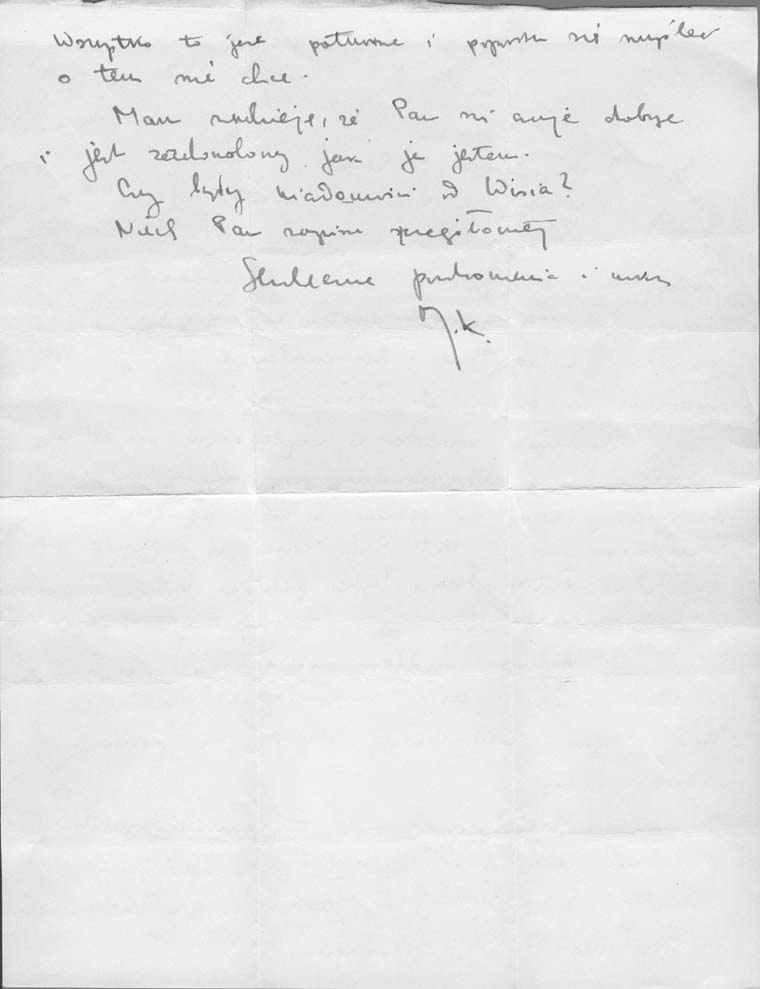 Wszystko to jest potworne i poprostu się myśleć
o tem nie chce.
Mam nadzieję, że Pan się czuje dobrze
i jest zadowolony jak ja jestem.
Czy były wiadomości od Wisia?
Niech Pan napisze
Serdeczne pozdrowienia i
J.K.